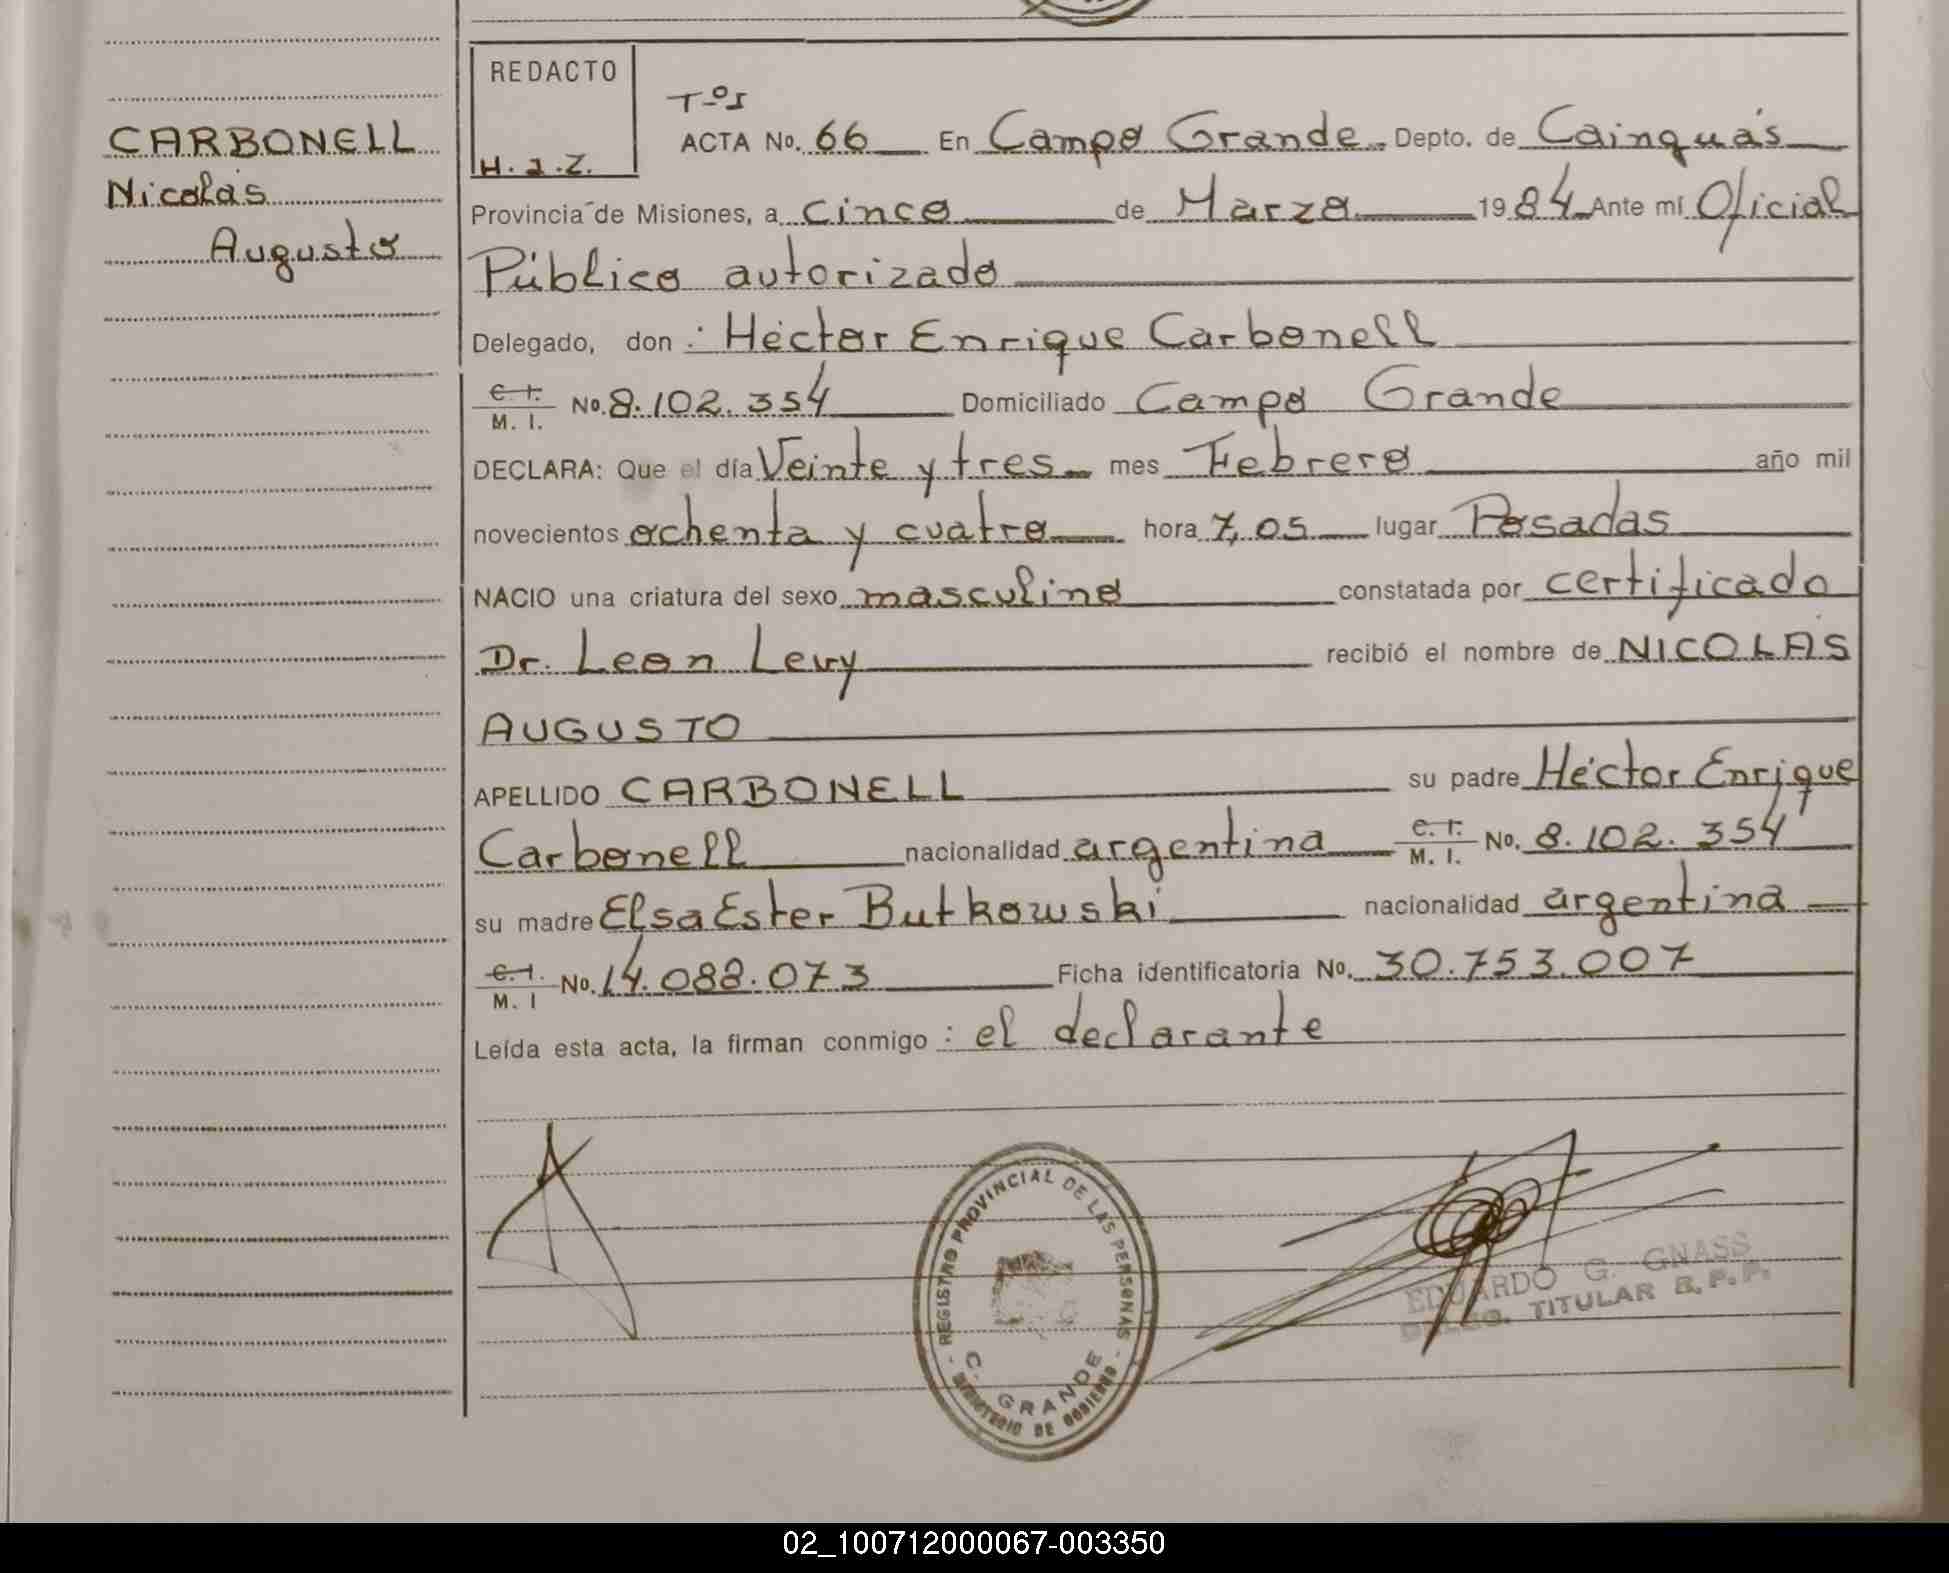 REDACTO
H. J. Z.
CARBONELL
Nicolás
Augusto
Tº I
ACTA No. 66 En Campo Grande. Depto. de Cainguás
Provincia de Misiones, a cinco de Marzo 1984 Ante mí Oficial
Público autorizado
Delegado, don : Héctor Enrique Carbonell
C. I. M. I. No. 8.102.354 Domiciliado Campo Grande
DECLARA: Que el día Veinte y tres mes Febrero año mil
novecientos ochenta y cuatro hora 7,05 lugar Posadas
NACIO una criatura del sexo masculino constatada por certificado
Dr. Leon Levy recibió el nombre de NICOLÁS
AUGUSTO
APELLIDO CARBONELL su padre Héctor Enrique
Carbonell nacionalidad argentina C. I. M. I. No. 8.102.354
su madre Elsa Ester Butkowski nacionalidad argentina
C. I. M. I No. 14.088.073 Ficha identificatoria No. 30.753.007
Leída esta acta, la firman conmigo : el declarante
REGISTRO PROVINCIAL DE LAS PERSONAS
C. GRANDE
MINISTERIO DE GOBIERNO
EDUARDO G. GNASS
TITULAR R. P. P.
02_100712000067-003350